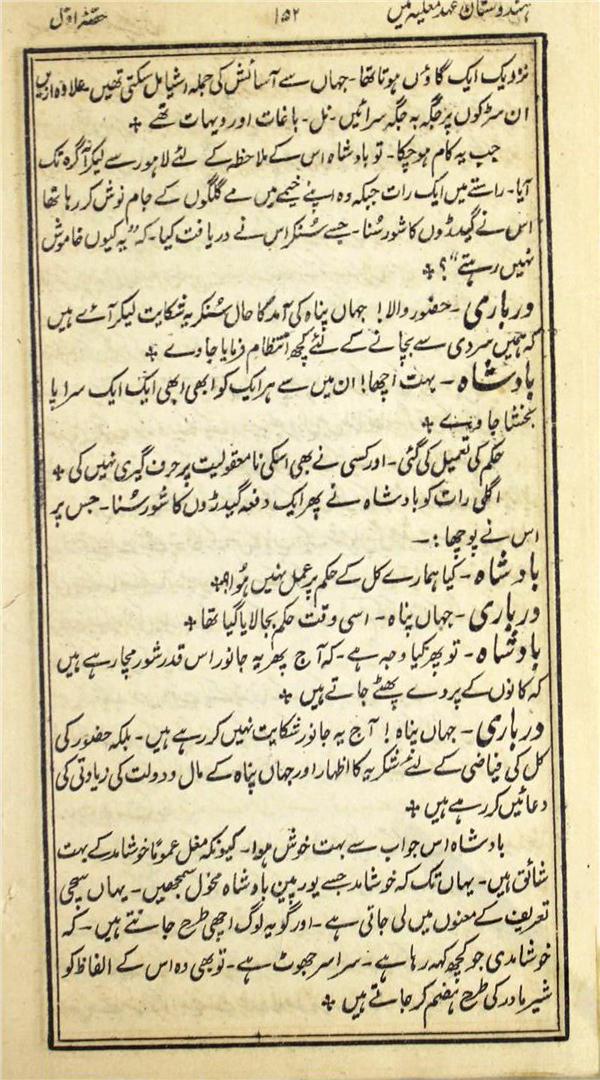 ہندوستان عہد مغلیہ میں ۱۵۲ حصہ اول
نزدیک ایک گاؤں ہوتا تھا۔ جہاں سے آسائش کی جملہ اشیا مل سکتی تھیں۔ علاوہ ازیں
ان سڑکوں پر جگہ بہ جگہ سرائیں۔ نل۔ باغات اور دیہات تھے ٭
جب یہ کام ہوچکا۔ تو بادشاہ اس کے ملاحظہ کے لئے لاہور سے لیکر آگرہ تک
آیا۔ راستے میں ایک رات جبکہ وہ اپنے خیمے میں مے گلگوں کے جام نوش کر رہا تھا
اس نے گیدڑوں کا شور سُنا۔ جسے سُنکر اس نے دریافت کیا۔ کہ "یہ کیوں خاموش
نہیں رہتے"؟ ٭
درباری۔ حضور والا! جہاں پناہ کی آمد کا حال سُنکر یہ شکایت لیکر آئے ہیں
کہ ہمیں سردی سے بچانے کے لئے کچھ انتظام فرمایا جاوے ٭
بادشاہ۔ بہت اچھا! ان میں سے ہر ایک کو ابھی ابھی ایک ایک سراپا
بخشا جاوے ٭
حکم کی تعمیل کی گئی۔ اور کسی نے بھی اسکی نامعقولیت پر حرف گیری نہیں کی ٭
اگلی رات کو بادشاہ نے پھر ایک دفعہ گیدڑوں کا شور سُنا۔ جس پر
اس نے پوچھا:۔
بادشاہ۔ کیا ہمارے کل کے حکم پر عمل نہیں ہُوا؟
درباری۔ جہاں پناہ۔ اسی وقت حکم بجا لایا گیا تھا ٭
بادشاہ۔ تو پھر کیا وجہ ہے۔ کہ آج پھر یہ جانور اس قدر شور مچا رہے ہیں
کہ کانوں کے پردے پھٹے جاتے ہیں ٭
درباری۔ جہاں پناہ! آج یہ جانور شکایت نہیں کر رہے ہیں۔ بلکہ حضور کی
کل کی فیاضی کے لئے شکریہ کا اظہار اور جہاں پناہ کے مال و دولت کی زیادتی کی
دعائیں کر رہے ہیں ٭
بادشاہ اس جواب سے بہت خوش ہوا۔ کیونکہ مغل عموماً خوشامد کے بہت
شائق ہیں۔ یہاں تک کہ خوشامد جسے یورپین بادشاہ مخول سمجھیں۔ یہاں سچی
تعریف کے معنوں میں لی جاتی ہے۔ اور گو یہ لوگ اچھی طرح جانتے ہیں۔ کہ
خوشامدی جو کچھ کہہ رہا ہے۔ سراسر جھوٹ ہے۔ تو بھی وہ اس کے الفاظ کو
شیر مادر کی طرح ہضم کر جاتے ہیں ٭